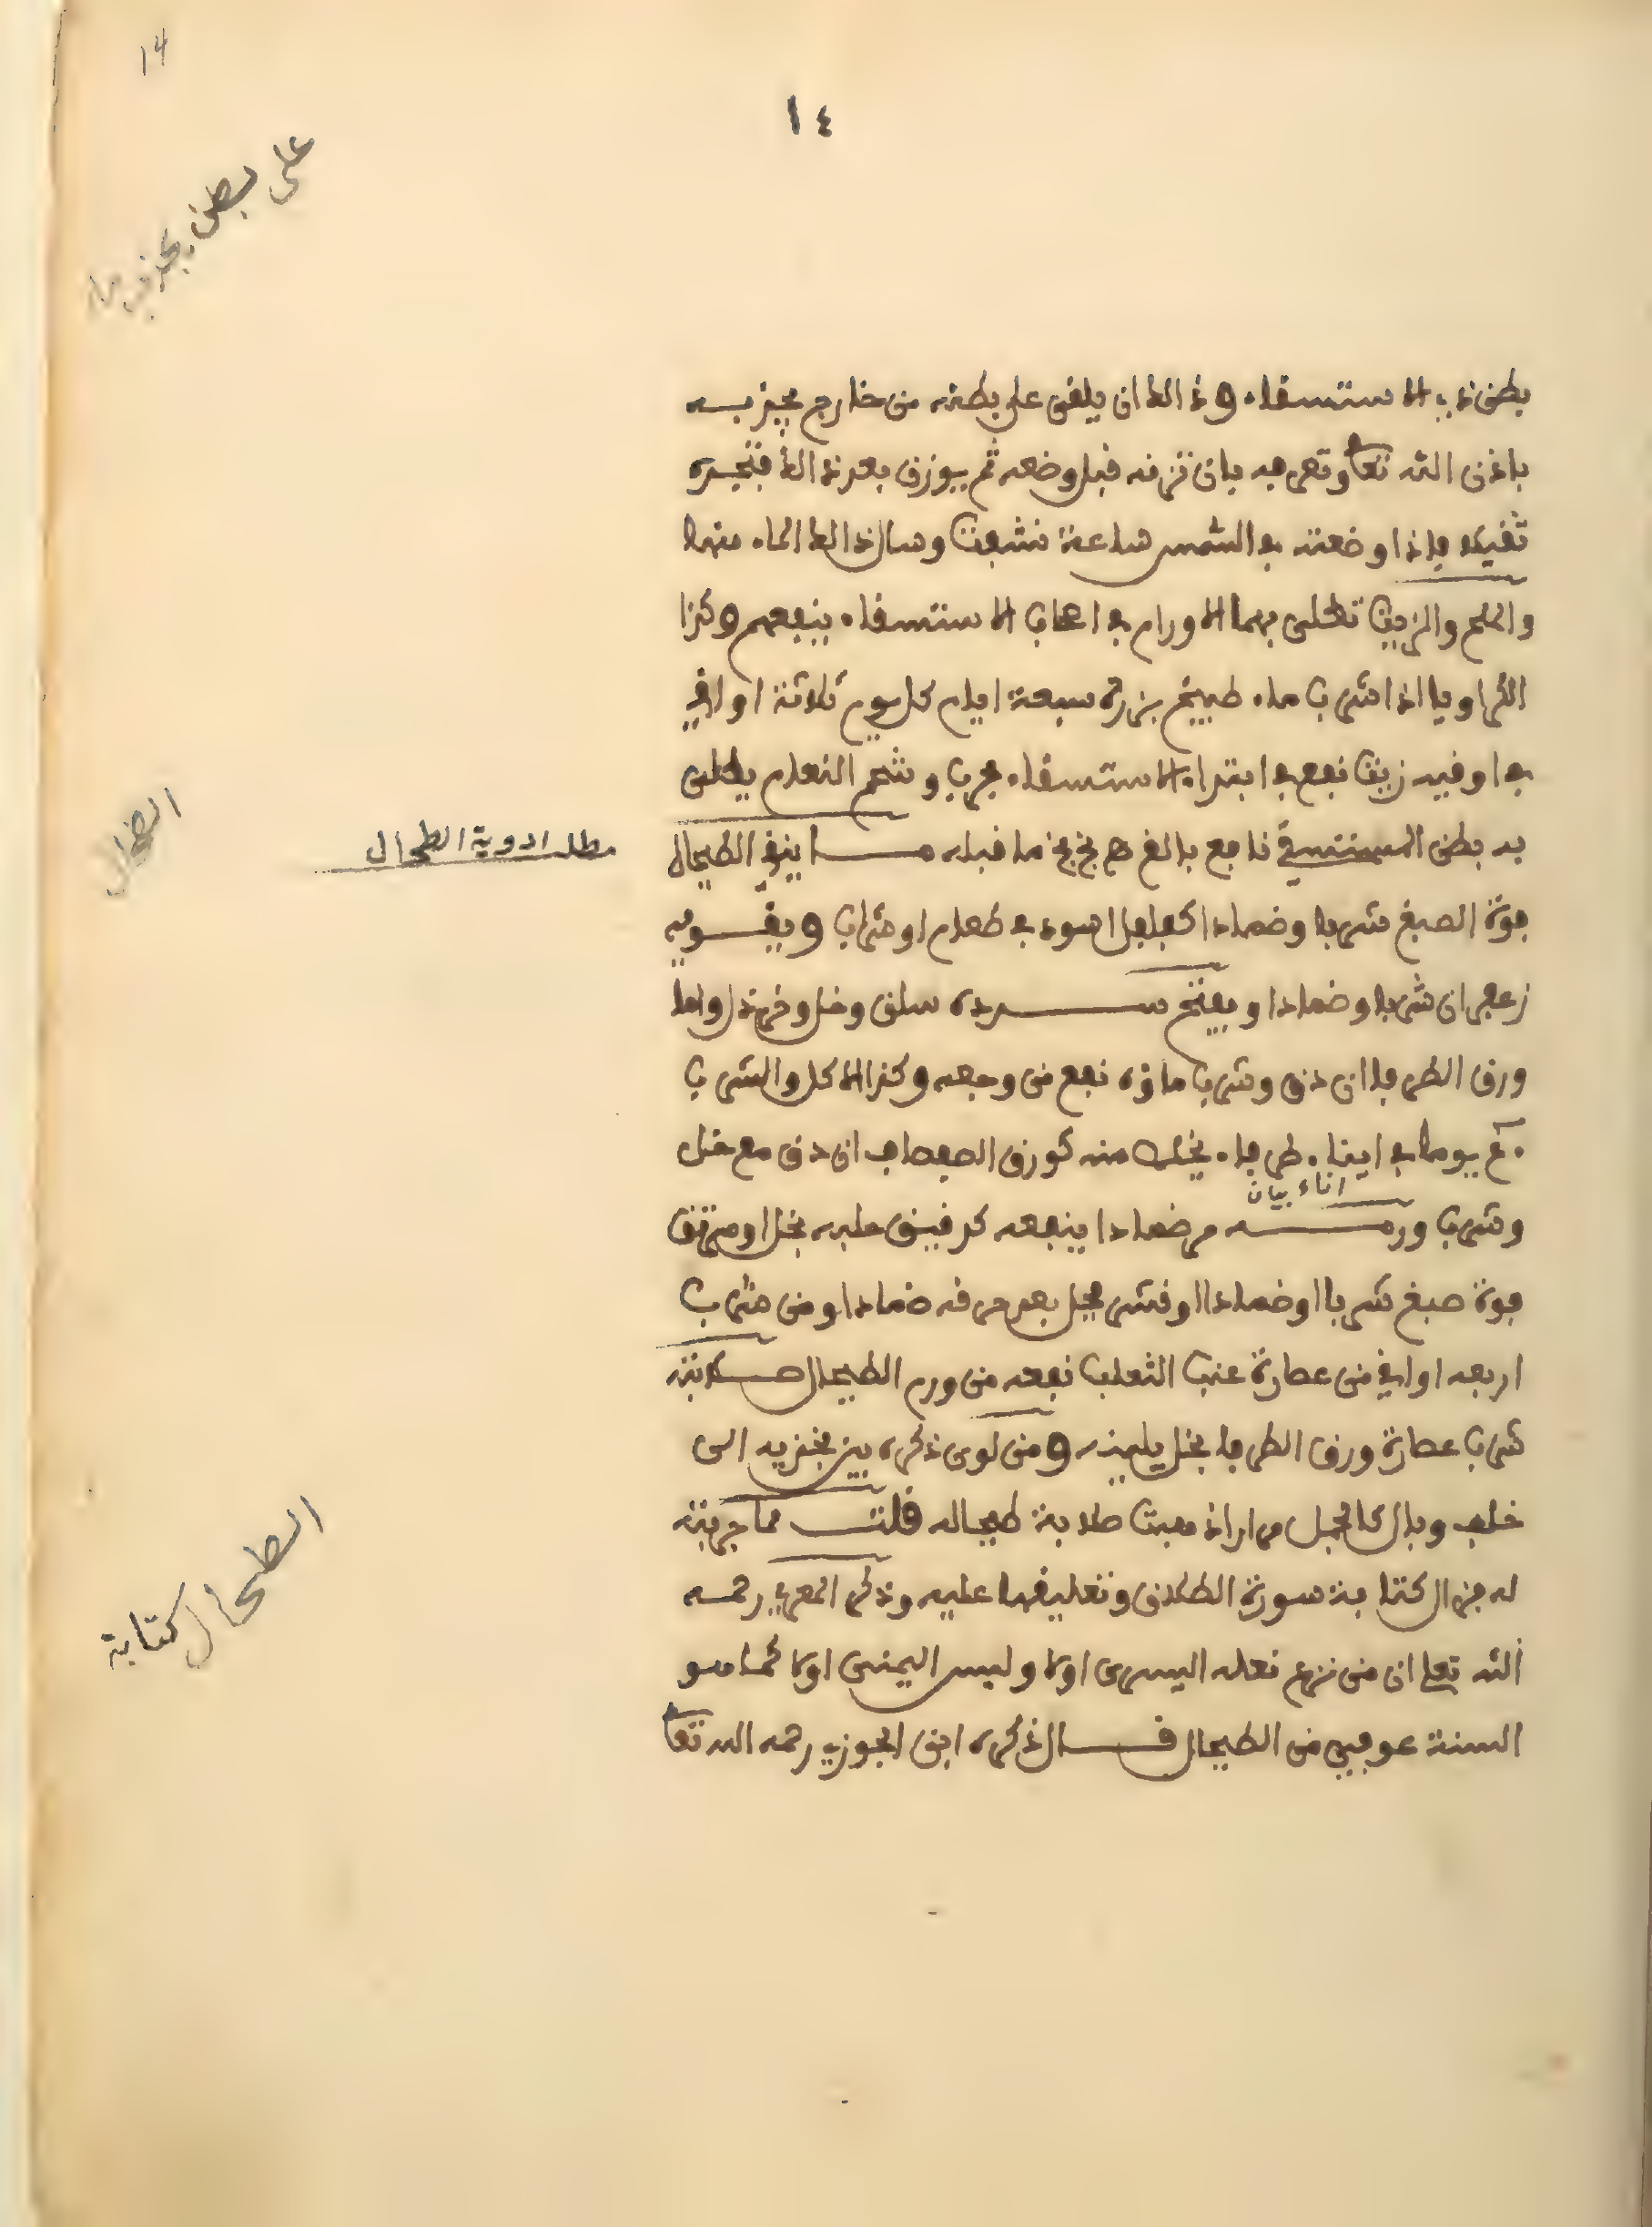 14
١٤
على بطن يجذب
بطن ذي الاستسقاء وذالك ان يلقى على بطنه من خارج يجذبه
باذن الله تعا وتعرفه بان تزنه قبل وضعه ثم يوزن بعد ذالك فتجده
ثقيلا فاذا وضعته في الشمس ساعة نشفت وسال ذالك الماء منها
والملح والزيت تطلى بهما الاورام في اصحاب الاستسقاء ينفعهم وكذا
الكراويا اذا شرب ماء طبيخ بزره سبعة ايام كل يوم ثلاثة اواقي
في اوقيه زيت نفع في ابتداء الاستسقاء مجرب وشحم النعام يطلى
به بطن المستسقي نافع بالغ صح ما قبله ما ينقي الطيحال
مطلب ادوية الطحال
الطحال
فوة الصبغ شربا وضمادا كفلفل اسود في طعام او شراب ويقويه
زعفران شربا وضمادا ويفتح سدده سلق وخل وخردل واما
ورق الطرفا ان دق وشرب ماؤه نفع من وجعه وكذا الاكل والشرب
٤٠ يوما في اناء طرفاء يخلل منه كورق الصفصاف ان دق مع خل
اناء بيان
وشرب ورمه ضمادا ينفعه كدقيق حلبه بخل او
فوة صبغ شربا او ضمادا او قشر فجل بعد حرقه ضمادا ومن شرب
اربعه اواقي من عصارة عنب الثعلب نفعه من ورم الطيحال صلابته
شرب عصارة ورق الطرفا بخل يلينه ومن لوى ذكره بين فخذيه الى
خلف وبال كالجمل مرارا ذهبت صلابة طيحاله قلت مما جربته
له كتابة سورة الطلاق وتعليقها عليه وذكر المعري رحمه
الطحال كتابة
الله تعلى ان من نزع نعله اليسرى اولا ولبس اليمنى اولا كما هو
السنة عوفي من الطيحال قال ذكره ابن الجوزي رحمه الله تعا